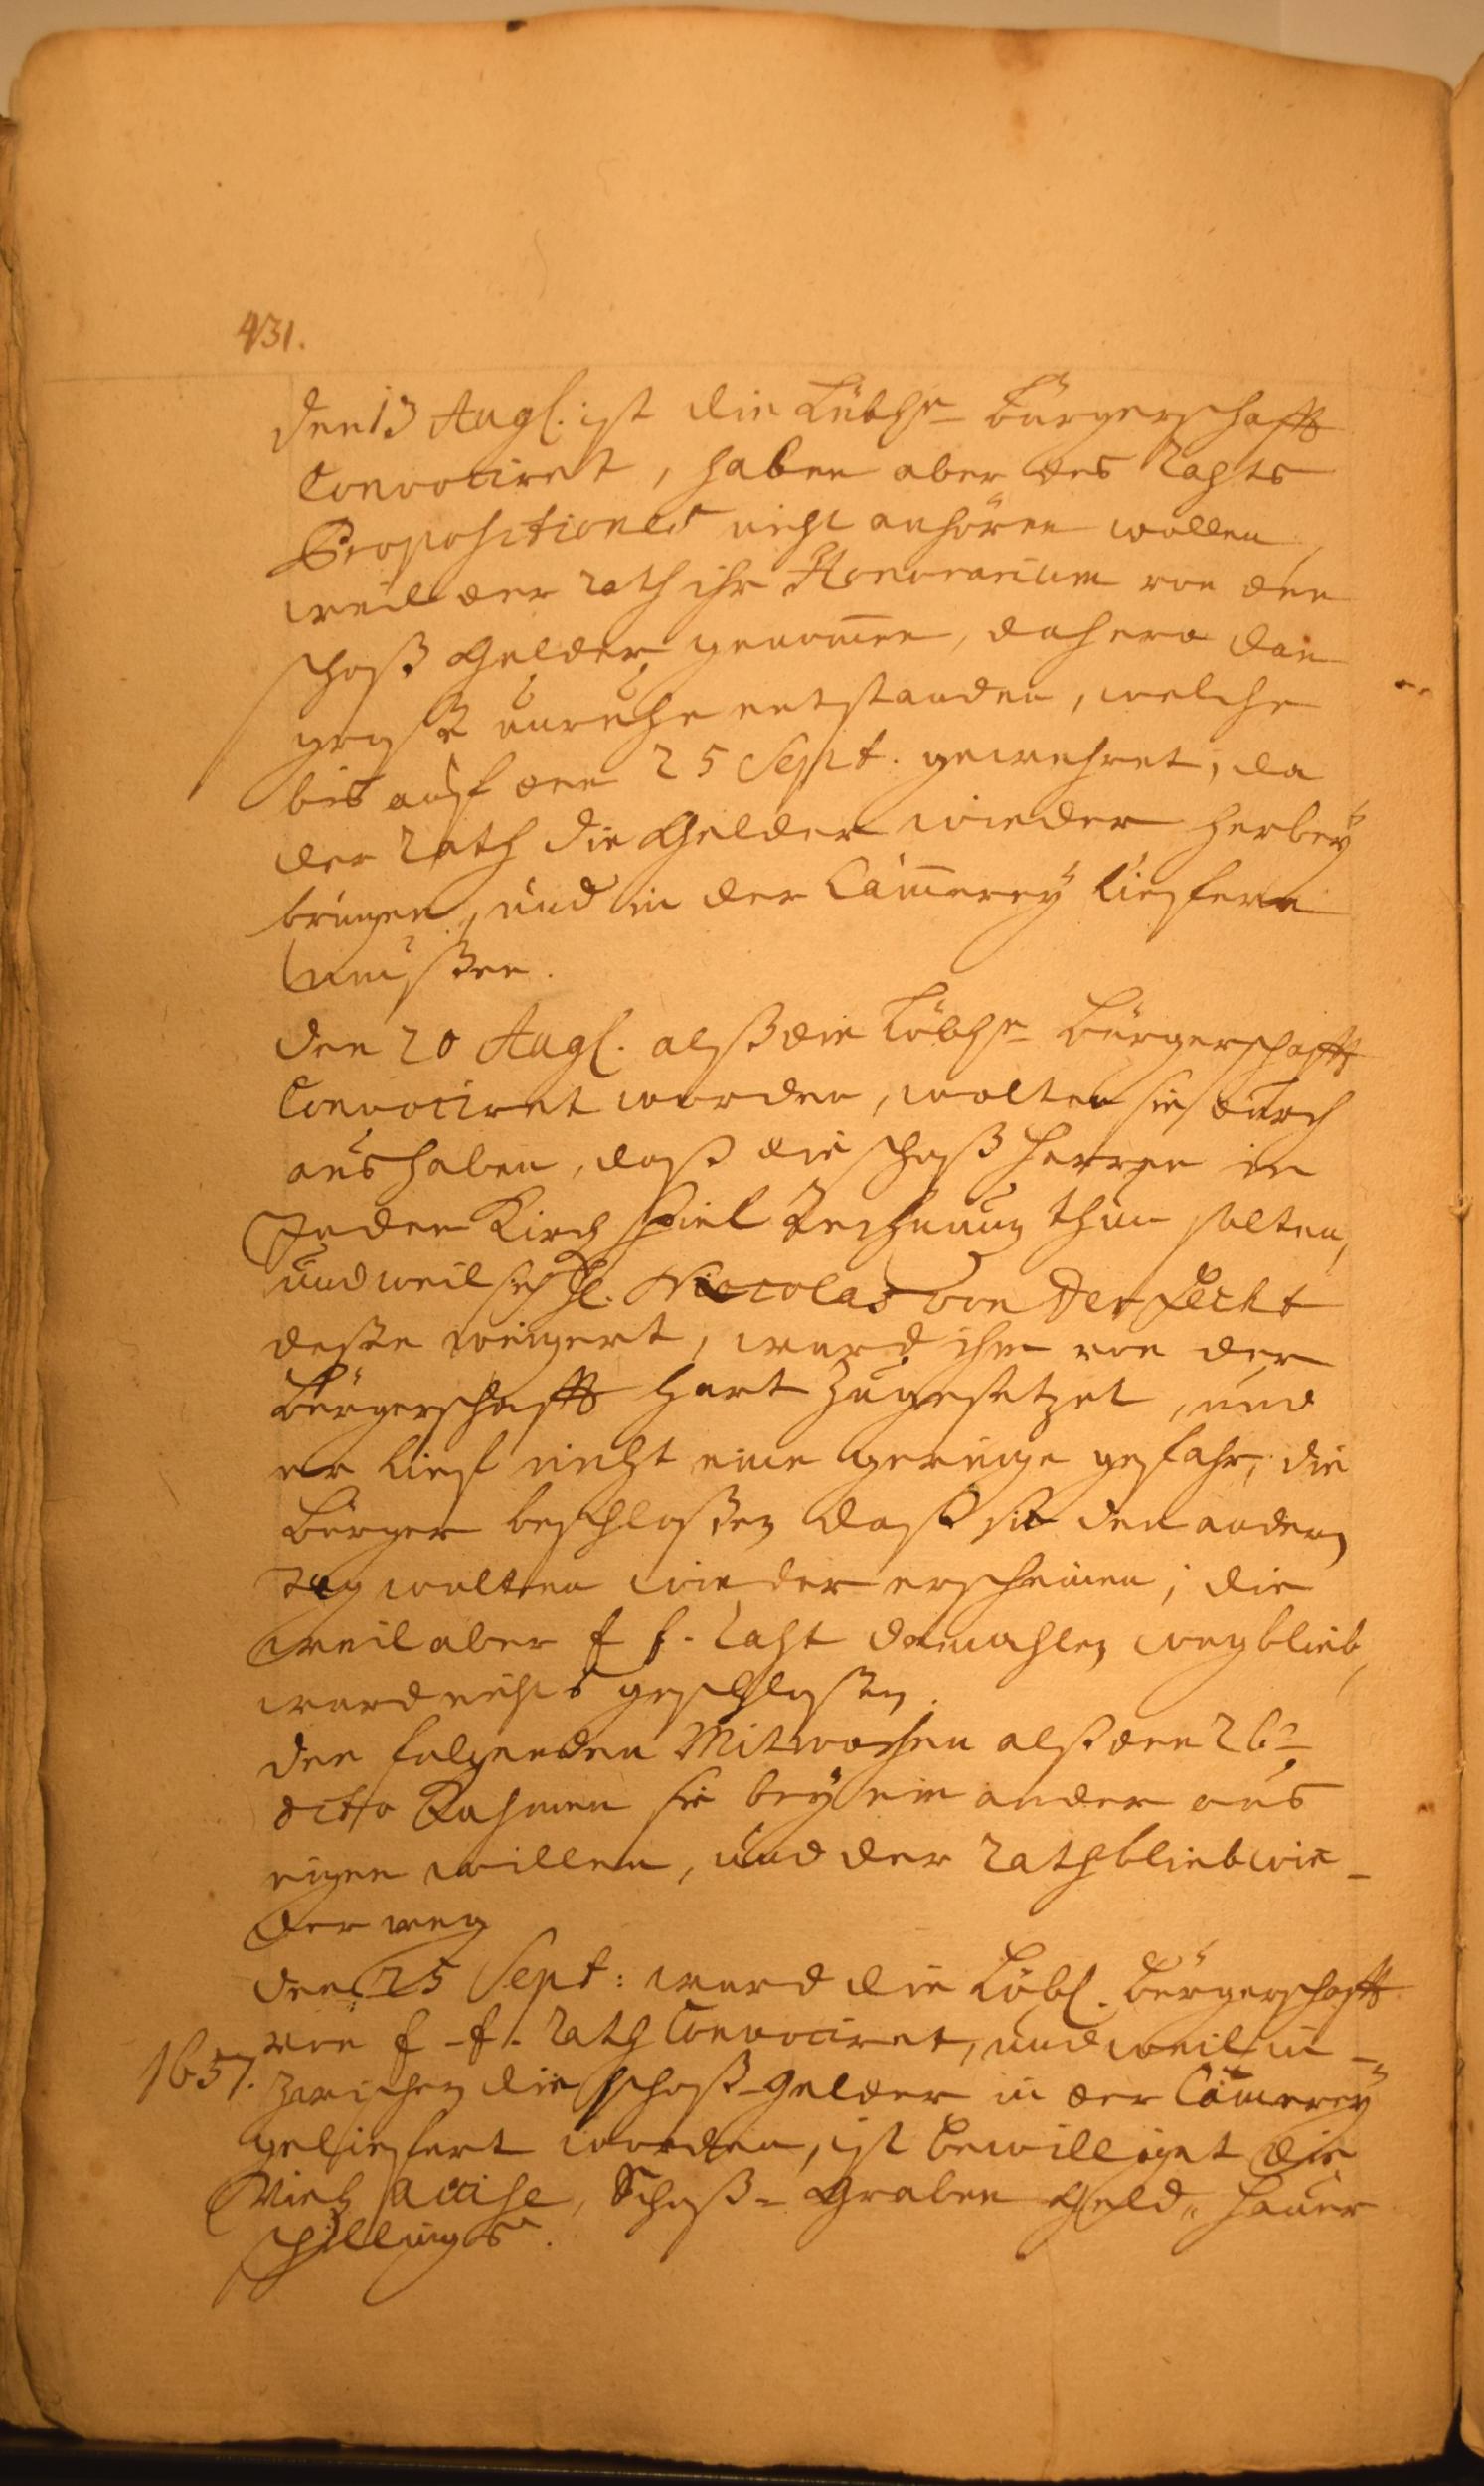 431.
den 13 Augs. ist die Löbl. Bürgerschafft
Convociret, haben aber des Rahts
Propositiones nicht anhören wollen,
weil der Rath ihr Honorarium von den
schoß Gelder, genom̄en, dahero dan
große unruhe entstanden, welche
bis auff den 25 Sept. gewehret, da
der Rath die Gelder wieder herbey
bringen, und in der Cam̄erey lieffern
müßen.
den 20 Augs. alß die Löbl. Bürgerschafft
Convociret worden, wolten sie durch
aus haben, daß die schoß Herren in
Jeder Kirch spiel Rechnung thun solten,
und weil sich H. Niccolas von Der Fecht
deßen weigert, ward ihm von der
Bürgerschafft hart zugesetzet, und
er lieff nicht eine geringe gefahr, die
Bürger beschloßen daß sie den andern
Tag wolten wieder erscheinen, die
weil aber E E. Raht damahlen wegblieb,
ward nichts geschloßen.
den folgenden Mitwochen alß den 26
ditto Kahmen sie bey ein ander aus
eigen willen, und der Rath blieb wie-
der weg
den 25 Sept: ward die Löbl. Bürgerschafft
von E-E. Rath Convociret, und weil in-
1657. zwischen die schoß-gelder in der Cam̄erey
gelieffert worden, ist bewilliget die
Vieh Accise, Schoß- Graben Geld, Hauer
schillings.